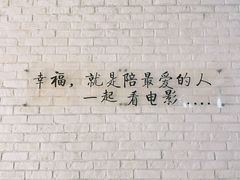 幸福，就是陪最爱的人
一起 看电影....